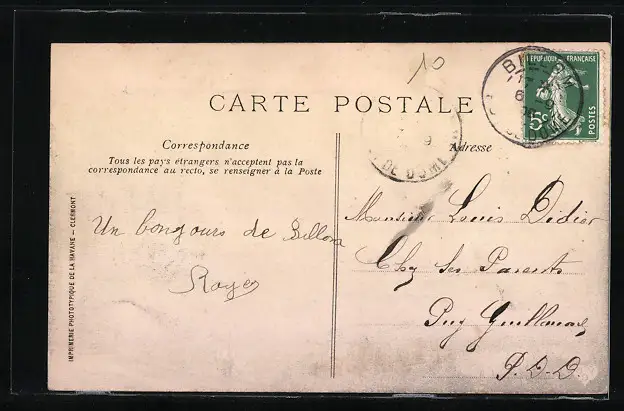 10
CARTE POSTALE
RÉPUBLIQUE FRANÇAISE
5c
POSTES
DE DOME
Correspondance
Tous les pays étrangers n'acceptent pas la
correspondance au recto, se renseigner à la Poste
Adresse
Un bonjours de
Monsieur Louis Didier
Chez Ses Parents
Puy Guillaume
P.-D.-D.
IMPRIMERIE PHOTOTYPIQUE DE LA HAVANE — CLERMONT